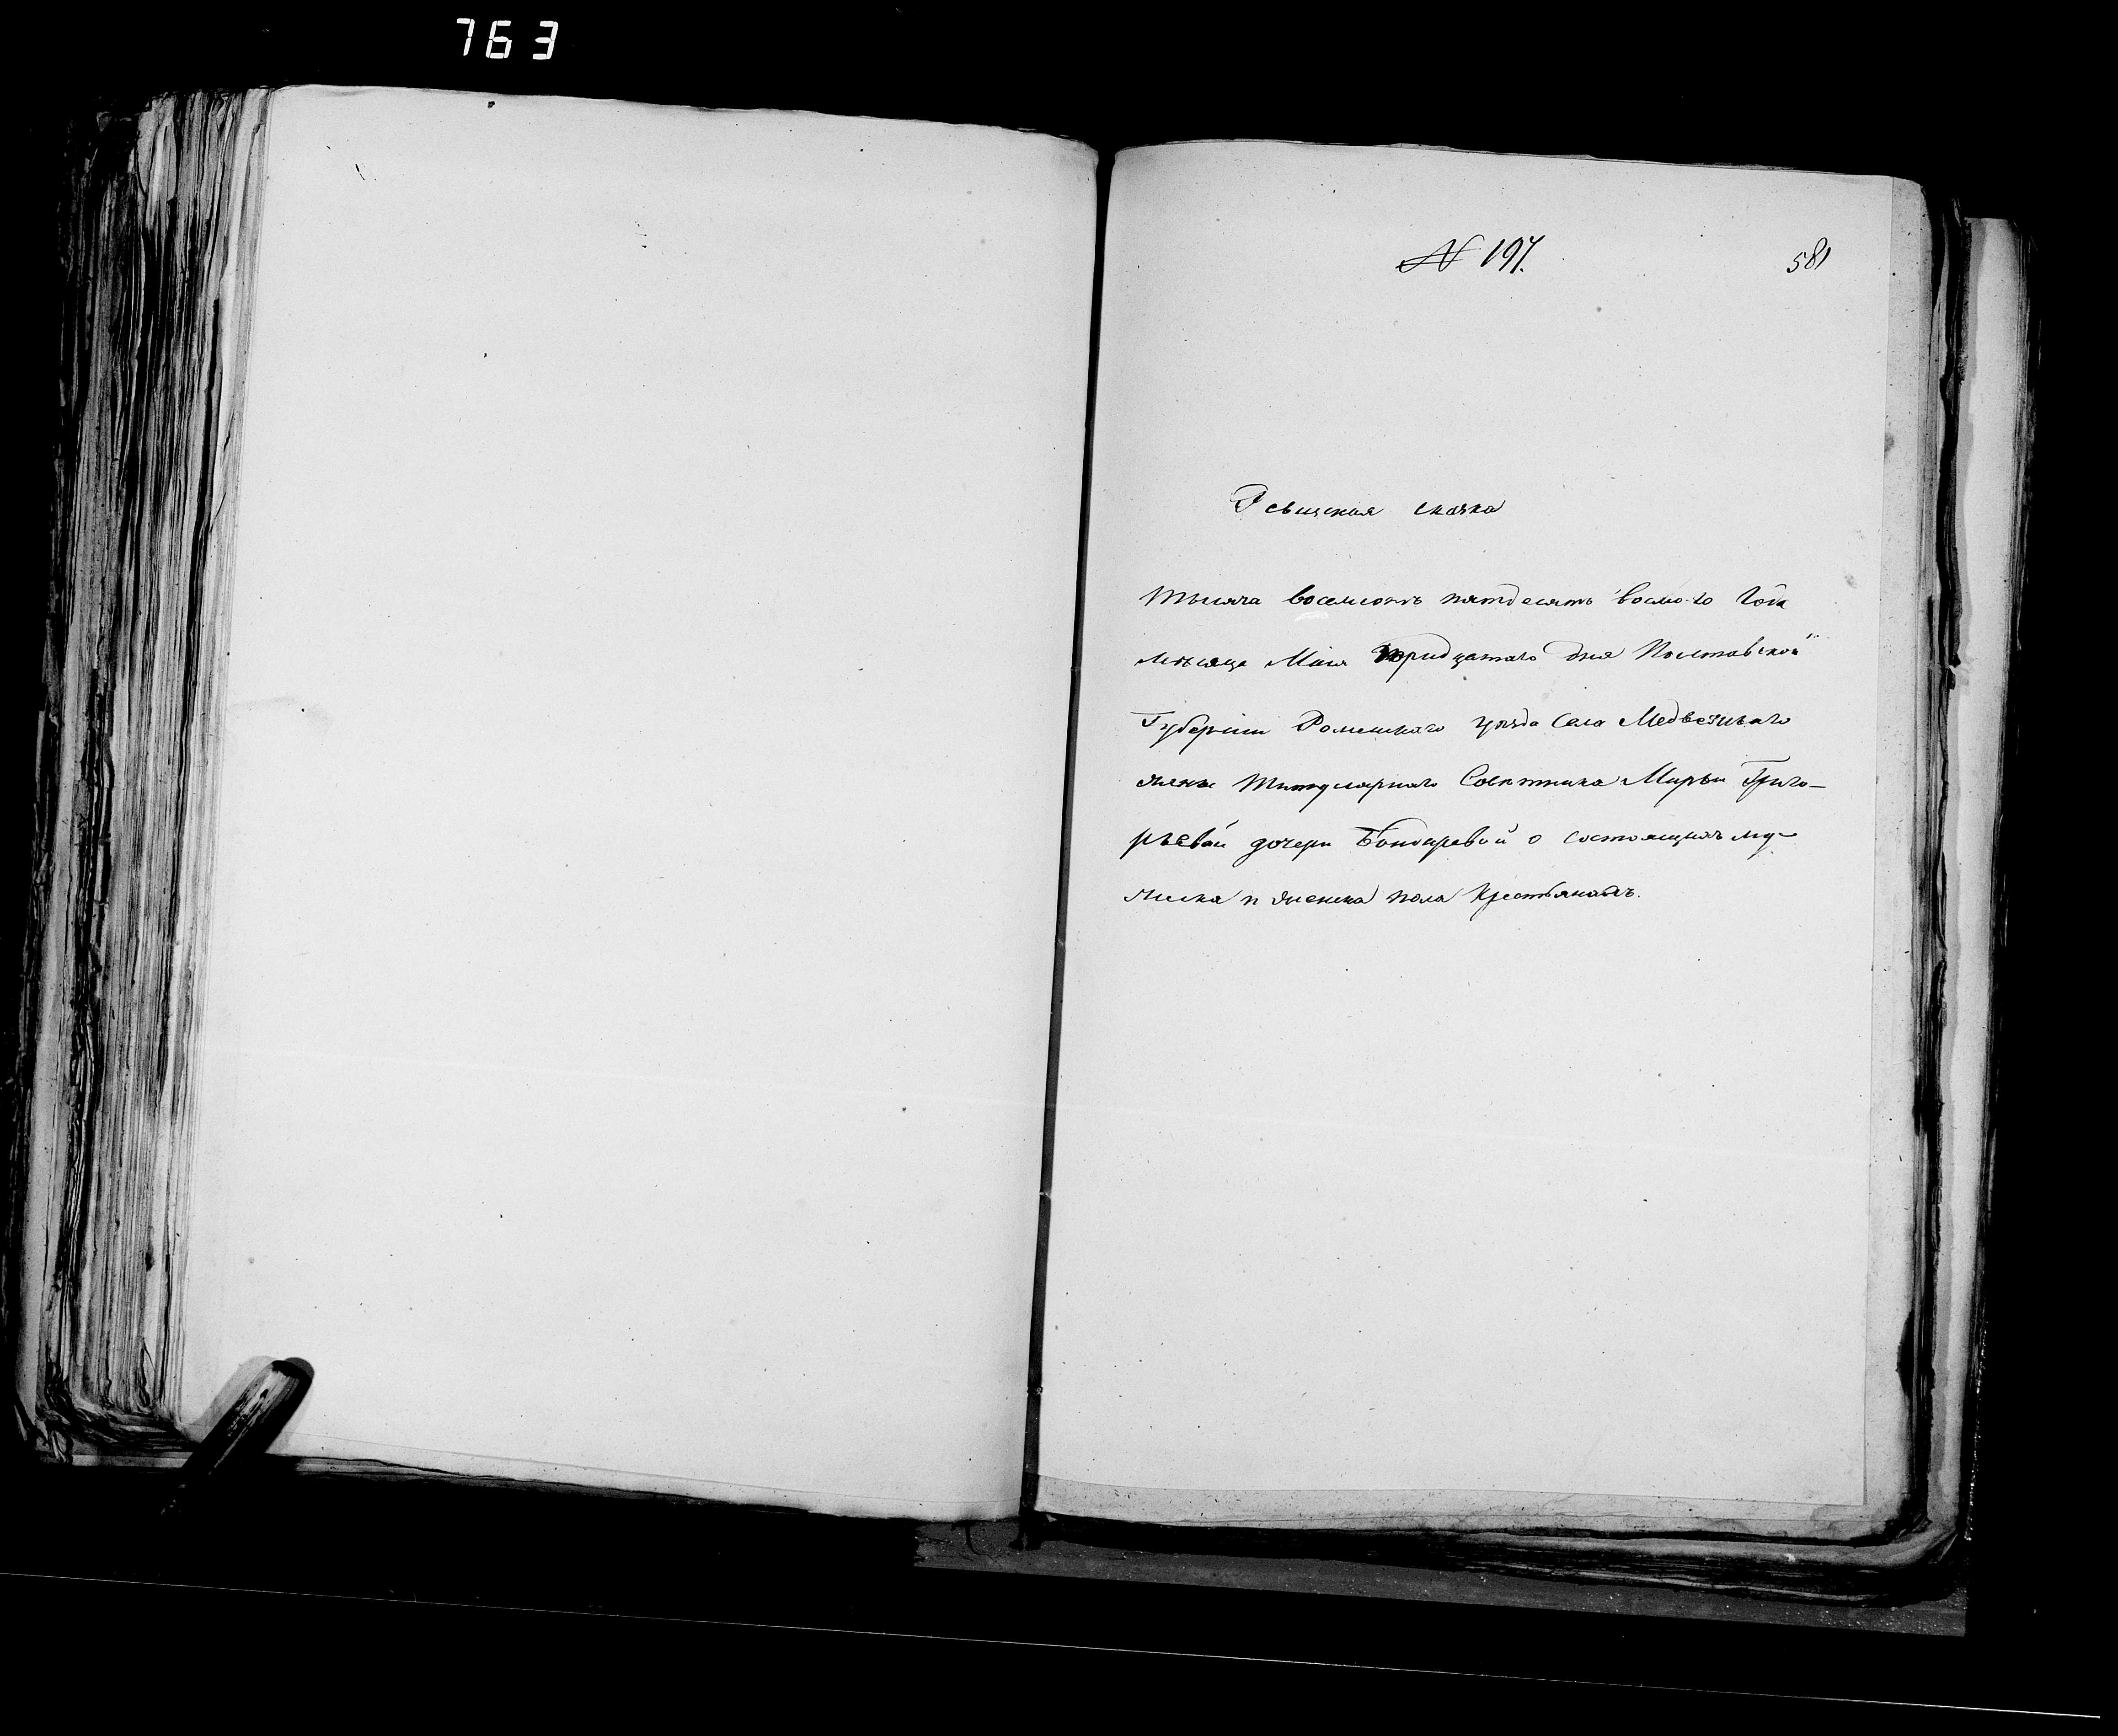 763
№ 197.
581
Ревизская сказка
Тысяча восемсотъ пятдесятъ восмого года
месяца Маія тридцатаго дня Полтавской
Губерніи Роменскаго уѣзда села Медвежьяго
жены Титулярнаго Советника Марьи Григо-
рьевой дочери Бондаревой о состоящихъ му-
жеска и женска пола крестьянахъ.